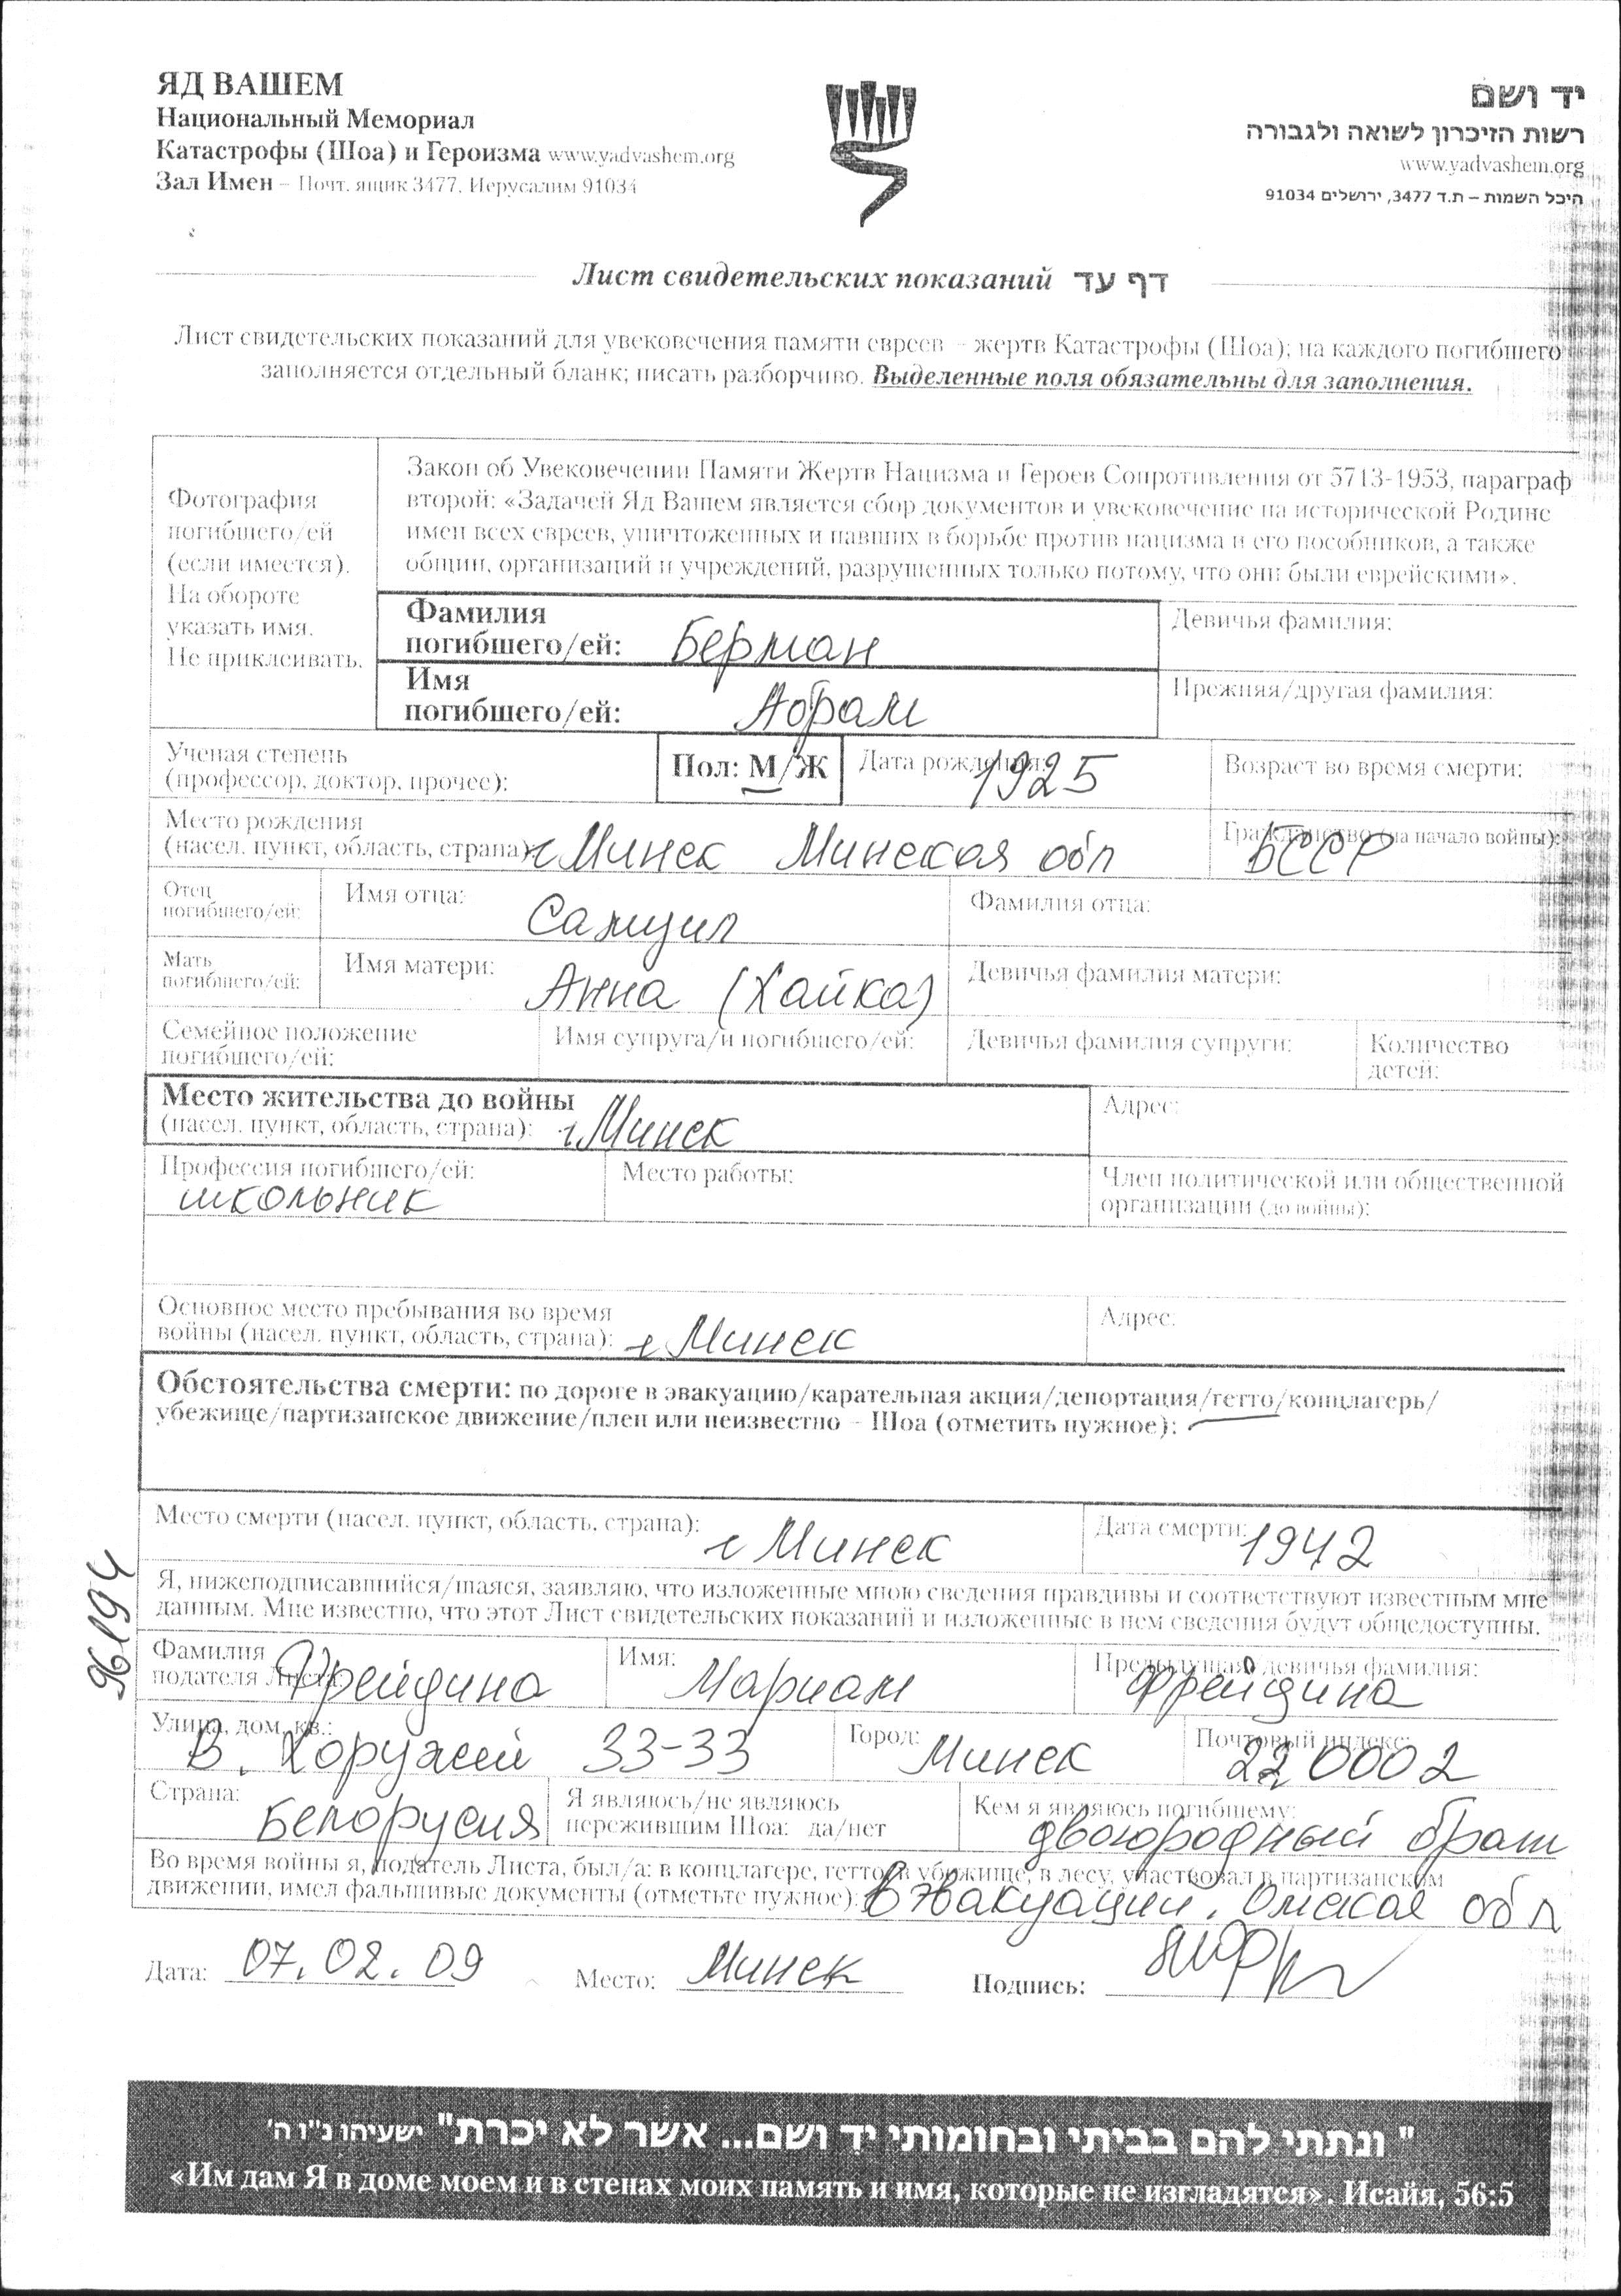 ЯД ВАШЕМ
Национальный Мемориал
Катастрофы (Шоа) и Героизма www.yadvashem.org
Зал Имен – Почт. ящик 3477, Иерусалим 91034
יד ושם
רשות הזיכרון לשואה ולגבורה
www.yadvashem.org
היכל השמות – ת.ד 3477, ירושלים 91034
Лист свидетельских показаний דף עד
Лист свидетельских показаний для увековечения памяти евреев – жертв Катастрофы (Шоа); на каждого погибшего
заполняется отдельный бланк; писать разборчиво. Выделенные поля обязательны для заполнения.
Фотография
погибшего/ей
(если имеется).
На обороте
указать имя.
Не приклеивать.
Закон об Увековечении Памяти Жертв Нацизма и Героев Сопротивления от 5713-1953, параграф
второй: «Задачей Яд Вашем является сбор документов и увековечение на исторической Родине
имен всех евреев, уничтоженных и павших в борьбе против нацизма и его пособников, а также
общин, организаций и учреждений, разрушенных только потому, что они были еврейскими».
Фамилия
погибшего/ей: Берман
Девичья фамилия:
Имя
погибшего/ей: Абрам
Прежняя/другая фамилия:
Ученая степень
(профессор, доктор, прочее):
Пол: М/Ж
Дата рождения: 1925
Возраст во время смерти:
Место рождения
(насел. пункт, область, страна): г Минск Минская обл
Гражданство (на начало войны):
БССР
Отец
погибшего/ей:
Имя отца: Самуил
Фамилия отца:
Мать
погибшего/ей:
Имя матери: Анна (Хайка)
Девичья фамилия матери:
Семейное положение
погибшего/ей:
Имя супруга/и погибшего/ей:
Девичья фамилия супруги:
Количество
детей:
Место жительства до войны
(насел. пункт, область, страна): г Минск
Адрес:
Профессия погибшего/ей:
школьник
Место работы:
Член политической или общественной
организации (до войны):
Основное место пребывания во время
войны (насел. пункт, область, страна): г Минск
Адрес:
Обстоятельства смерти: по дороге в эвакуацию/карательная акция/депортация/гетто/концлагерь/
убежище/партизанское движение/плен или неизвестно – Шоа (отметить нужное):
Место смерти (насел. пункт, область, страна): г Минск
Дата смерти: 1942
96194
Я, нижеподписавшийся/шаяся, заявляю, что изложенные мною сведения правдивы и соответствуют известным мне
данным. Мне известно, что этот Лист свидетельских показаний и изложенные в нем сведения будут общедоступны.
Фамилия
подателя Листа: Фрейдина
Имя: Мариам
Предыдущая/девичья фамилия:
Фрейдина
Улица, дом, кв.:
В. Хоружей 33-33
Город: Минск
Почтовый индекс:
220002
Страна: Белорусия
Я являюсь/не являюсь
пережившим Шоа: да/нет
Кем я являюсь погибшему:
двоюродный брат
Во время войны я, податель Листа, был/а: в концлагере, гетто, в убежище, в лесу, участвовал в партизанском
движении, имел фальшивые документы (отметьте нужное): в эвакуации, Омская обл
Дата: 07.02.09
Место: Минск
Подпись:
" ונתתי להם בביתי ובחומותי יד ושם... אשר לא יכרת" ישעיהו נ"ו ה'
«Им дам Я в доме моем и в стенах моих память и имя, которые не изгладятся». Исайя, 56:5